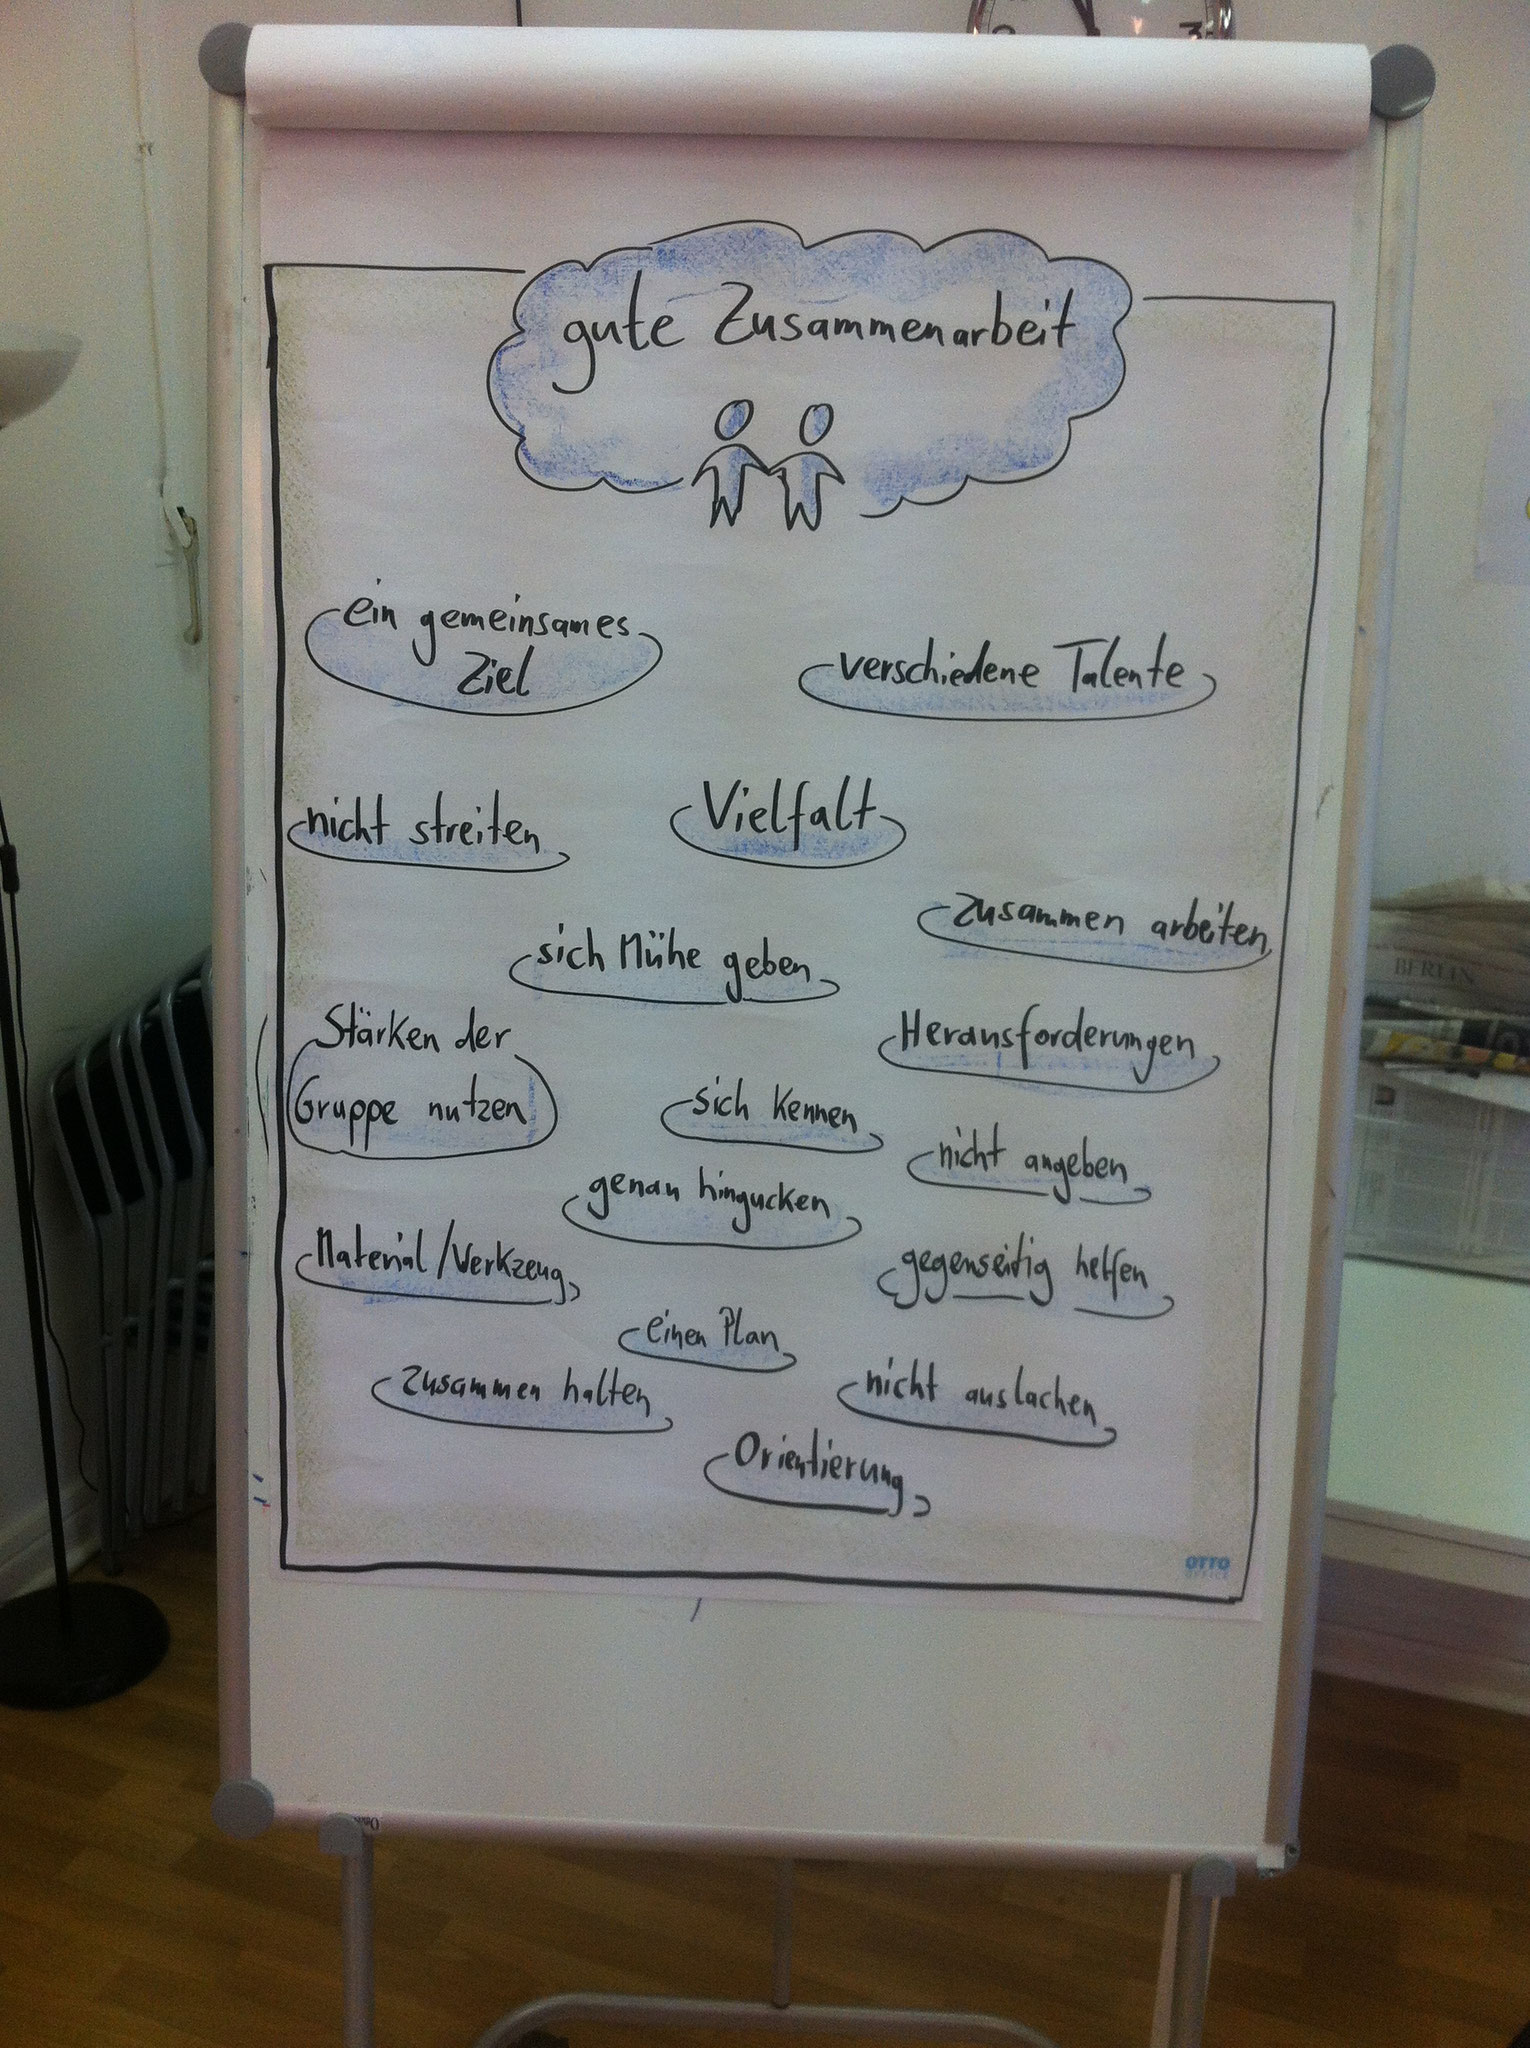 3
gute Zusammenarbeit
ein gemeinsames
Ziel
verschiedene Talente
nicht streiten
Vielfalt
zusammen arbeiten
sich Mühe geben
Stärken der
Gruppe nutzen
Herausforderungen
sich kennen
nicht angeben
genau hingucken
Material/Werkzeug
gegenseitig helfen
einen Plan
zusammen halten
nicht auslachen
Orientierung
OTTO
OFFICE
BERLIN